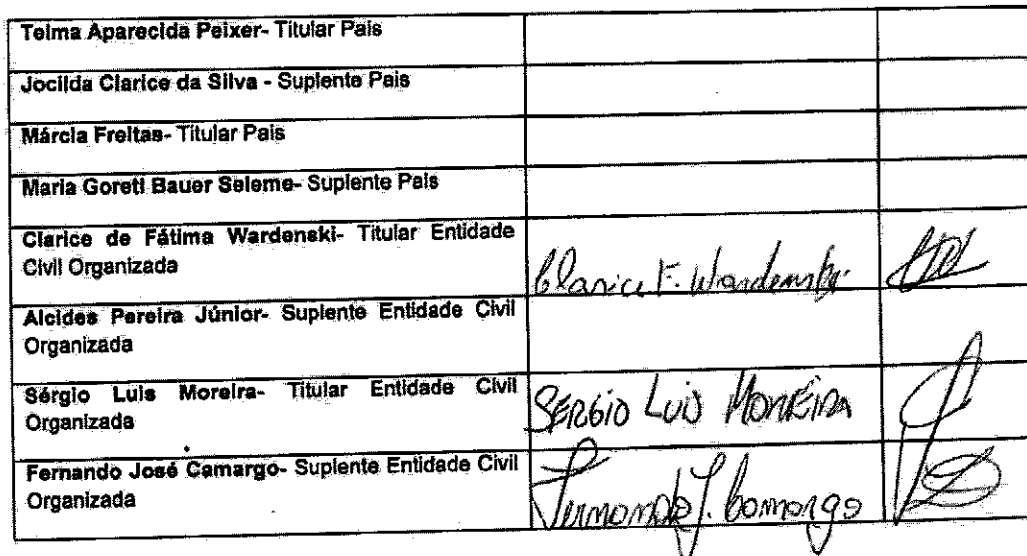 Telma Aparecida Peixer- Titular Pais
Jocilda Clarice da Silva - Suplente Pais
Márcia Freitas- Titular Pais
Maria Goreti Bauer Seleme- Suplente Pais
Clarice de Fátima Wardenski- Titular Entidade
Civil Organizada
Clarice F. Wardenski
Alcides Pereira Júnior- Suplente Entidade Civil
Organizada
Sérgio Luis Moreira- Titular Entidade Civil
Organizada
SERGIO LUIS MOREIRA
Fernando José Camargo- Suplente Entidade Civil
Organizada
Fernando J. Camargo